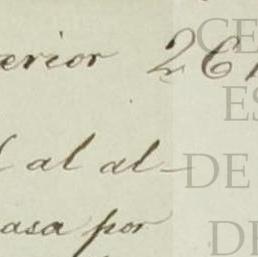 erior 2
al al-
asa por
CE
ES
DE
DE